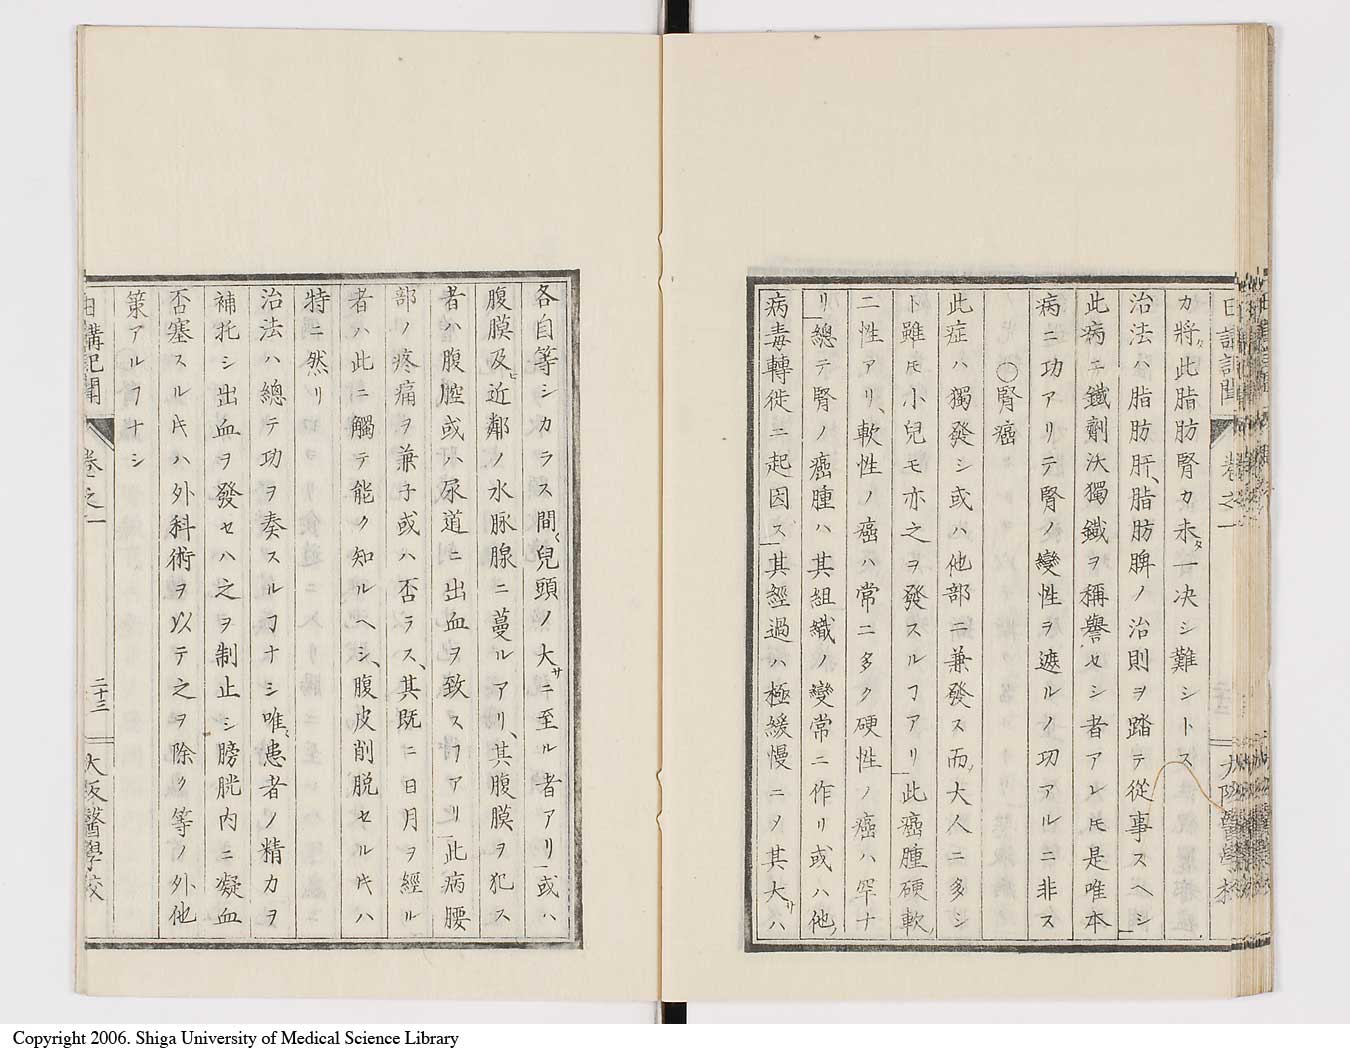 日講記聞 卷之一 大阪醫學校
カ將タ此脂肪腎カ未タ一決シ難シトス
治法ハ脂肪肝、脂肪脾ノ治則ヲ踏テ從事スヘシ
此病ニ鐵劑沃獨鐵ヲ稱譽セシ者アレ𪜈是唯本
病ニ功アリテ腎ノ變性ヲ遮ルノ功アルニ非ス
○腎癌
此症ハ獨發シ或ハ他部ニ兼發ス而ノ大人ニ多シ
ト雖𪜈小兒モ亦之ヲ發スルヿアリ此癌腫硬軟ノ
二性アリ、軟性ノ癌ハ常ニ多ク硬性ノ癌ハ罕ナ
リ總テ腎ノ癌腫ハ其組織ノ變常ニ作リ或ハ他ノ
病毒轉徙ニ起因ス其經過ハ極緩慢ニノ其大サハ
各自等シカラス間ヒ兒頭ノ大サニ至ル者アリ或ハ
腹膜及ヒ近鄰ノ水脉腺ニ蔓ルアリ、其腹膜ヲ犯ス
者ハ腹腔或ハ尿道ニ出血ヲ致スヿアリ此病腰
部ノ疼痛ヲ兼子或ハ否ラス、其既ニ日月ヲ經ル
者ハ此ニ觸テ能ク知ルヘシ、腹皮削脱セル𪜈ハ
特ニ然リ
治法ハ總テ功ヲ奏スルヿナシ唯患者ノ精力ヲ
補托シ出血ヲ發セハ之ヲ制止シ膀胱内ニ凝血
否塞スル𪜈ハ外科術ヲ以テ之ヲ除ク等ノ外他
策アルヿナシ
日講記聞 卷之一 二十三 大阪醫學校
Copyright 2006. Shiga University of Medical Science Library